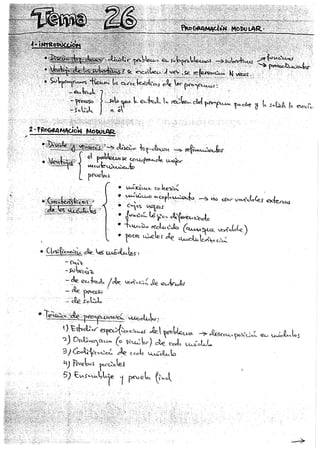 Tema 26
PROGRAMACIÓN MODULAR.
1- INTRODUCCIÓN
• Diseño top-down: dividir problema en subproblemas → subrutinas → funciones
→ procedimientos
• Ventaja de las subrutinas: se escriben 1 vez, se referencian N veces.
• Subprogramas tienen la características de los programas:
- entrada
- proceso
- salida
solo que la entrada la reciben del programa padre y la salida la envía
a él
2- PROGRAMACIÓN MODULAR
• Divide y vencerás → diseño top-down → refinamientos
• Ventajas
el problema se comprende mejor
mantenimiento
pruebas
• Características de los módulos
• máxima cohesión
• mínimo acoplamiento → no usar variables externas
• cajas negras
• función lógica diferenciada
• tamaño reducido (aunque variable)
• pocos niveles de modularización
• Clasificación de los módulos:
- raíz
- subraíz
- de entrada / de verificación de entrada
- de proceso
- de salida
• Técnica de programación modular:
1) Estudiar especificaciones del problema → descomposición en módulos
2) Ordinograma (o similar) de cada módulo
3) Codificación de cada módulo
4) Pruebas parciales
5) Ensamblaje y prueba final
→